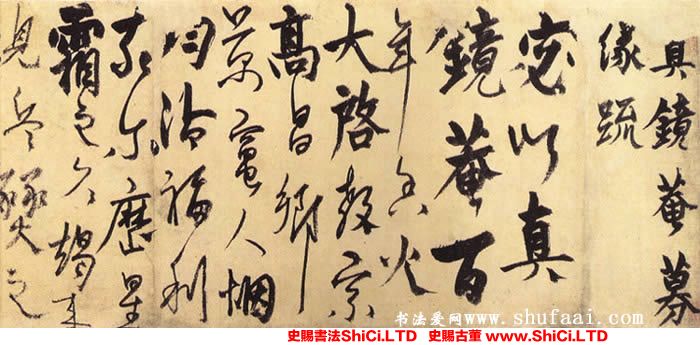 具鏡菴募
緣疏
窃以真
鏡菴百
年香火
大啓教宗
高昌鄉
萬竈人烟
均沾福利
奈尔歷星
霜之久竭来
見兵燹之
书法爱网www.shufaai.com
史賜書法ShiCi.LTD 史賜古董 www.ShiCi.LTD